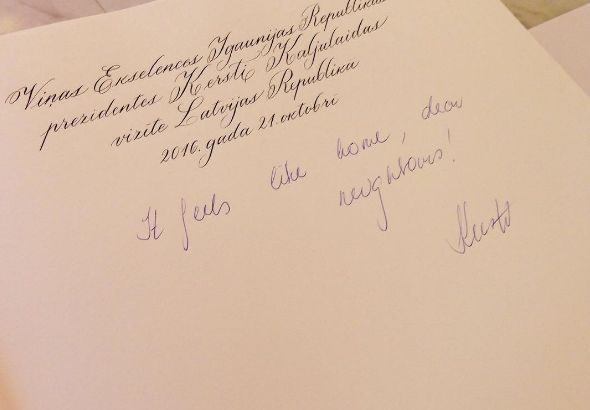 Viņas Ekselences Igaunijas Republikas
prezidentes Kersti Kaljulaidas
vizīte Latvijas Republikā
2016. gada 21. oktobrī
It feels like home, dear
neighbours!
Kersti